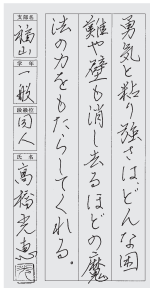 勇気と粘り強さは、どんな困
難や壁も消し去るほどの魔
法の力をもたらしてくれる。
支部名
福山
学年
一般
段級位
同人
氏名
高橋光恵